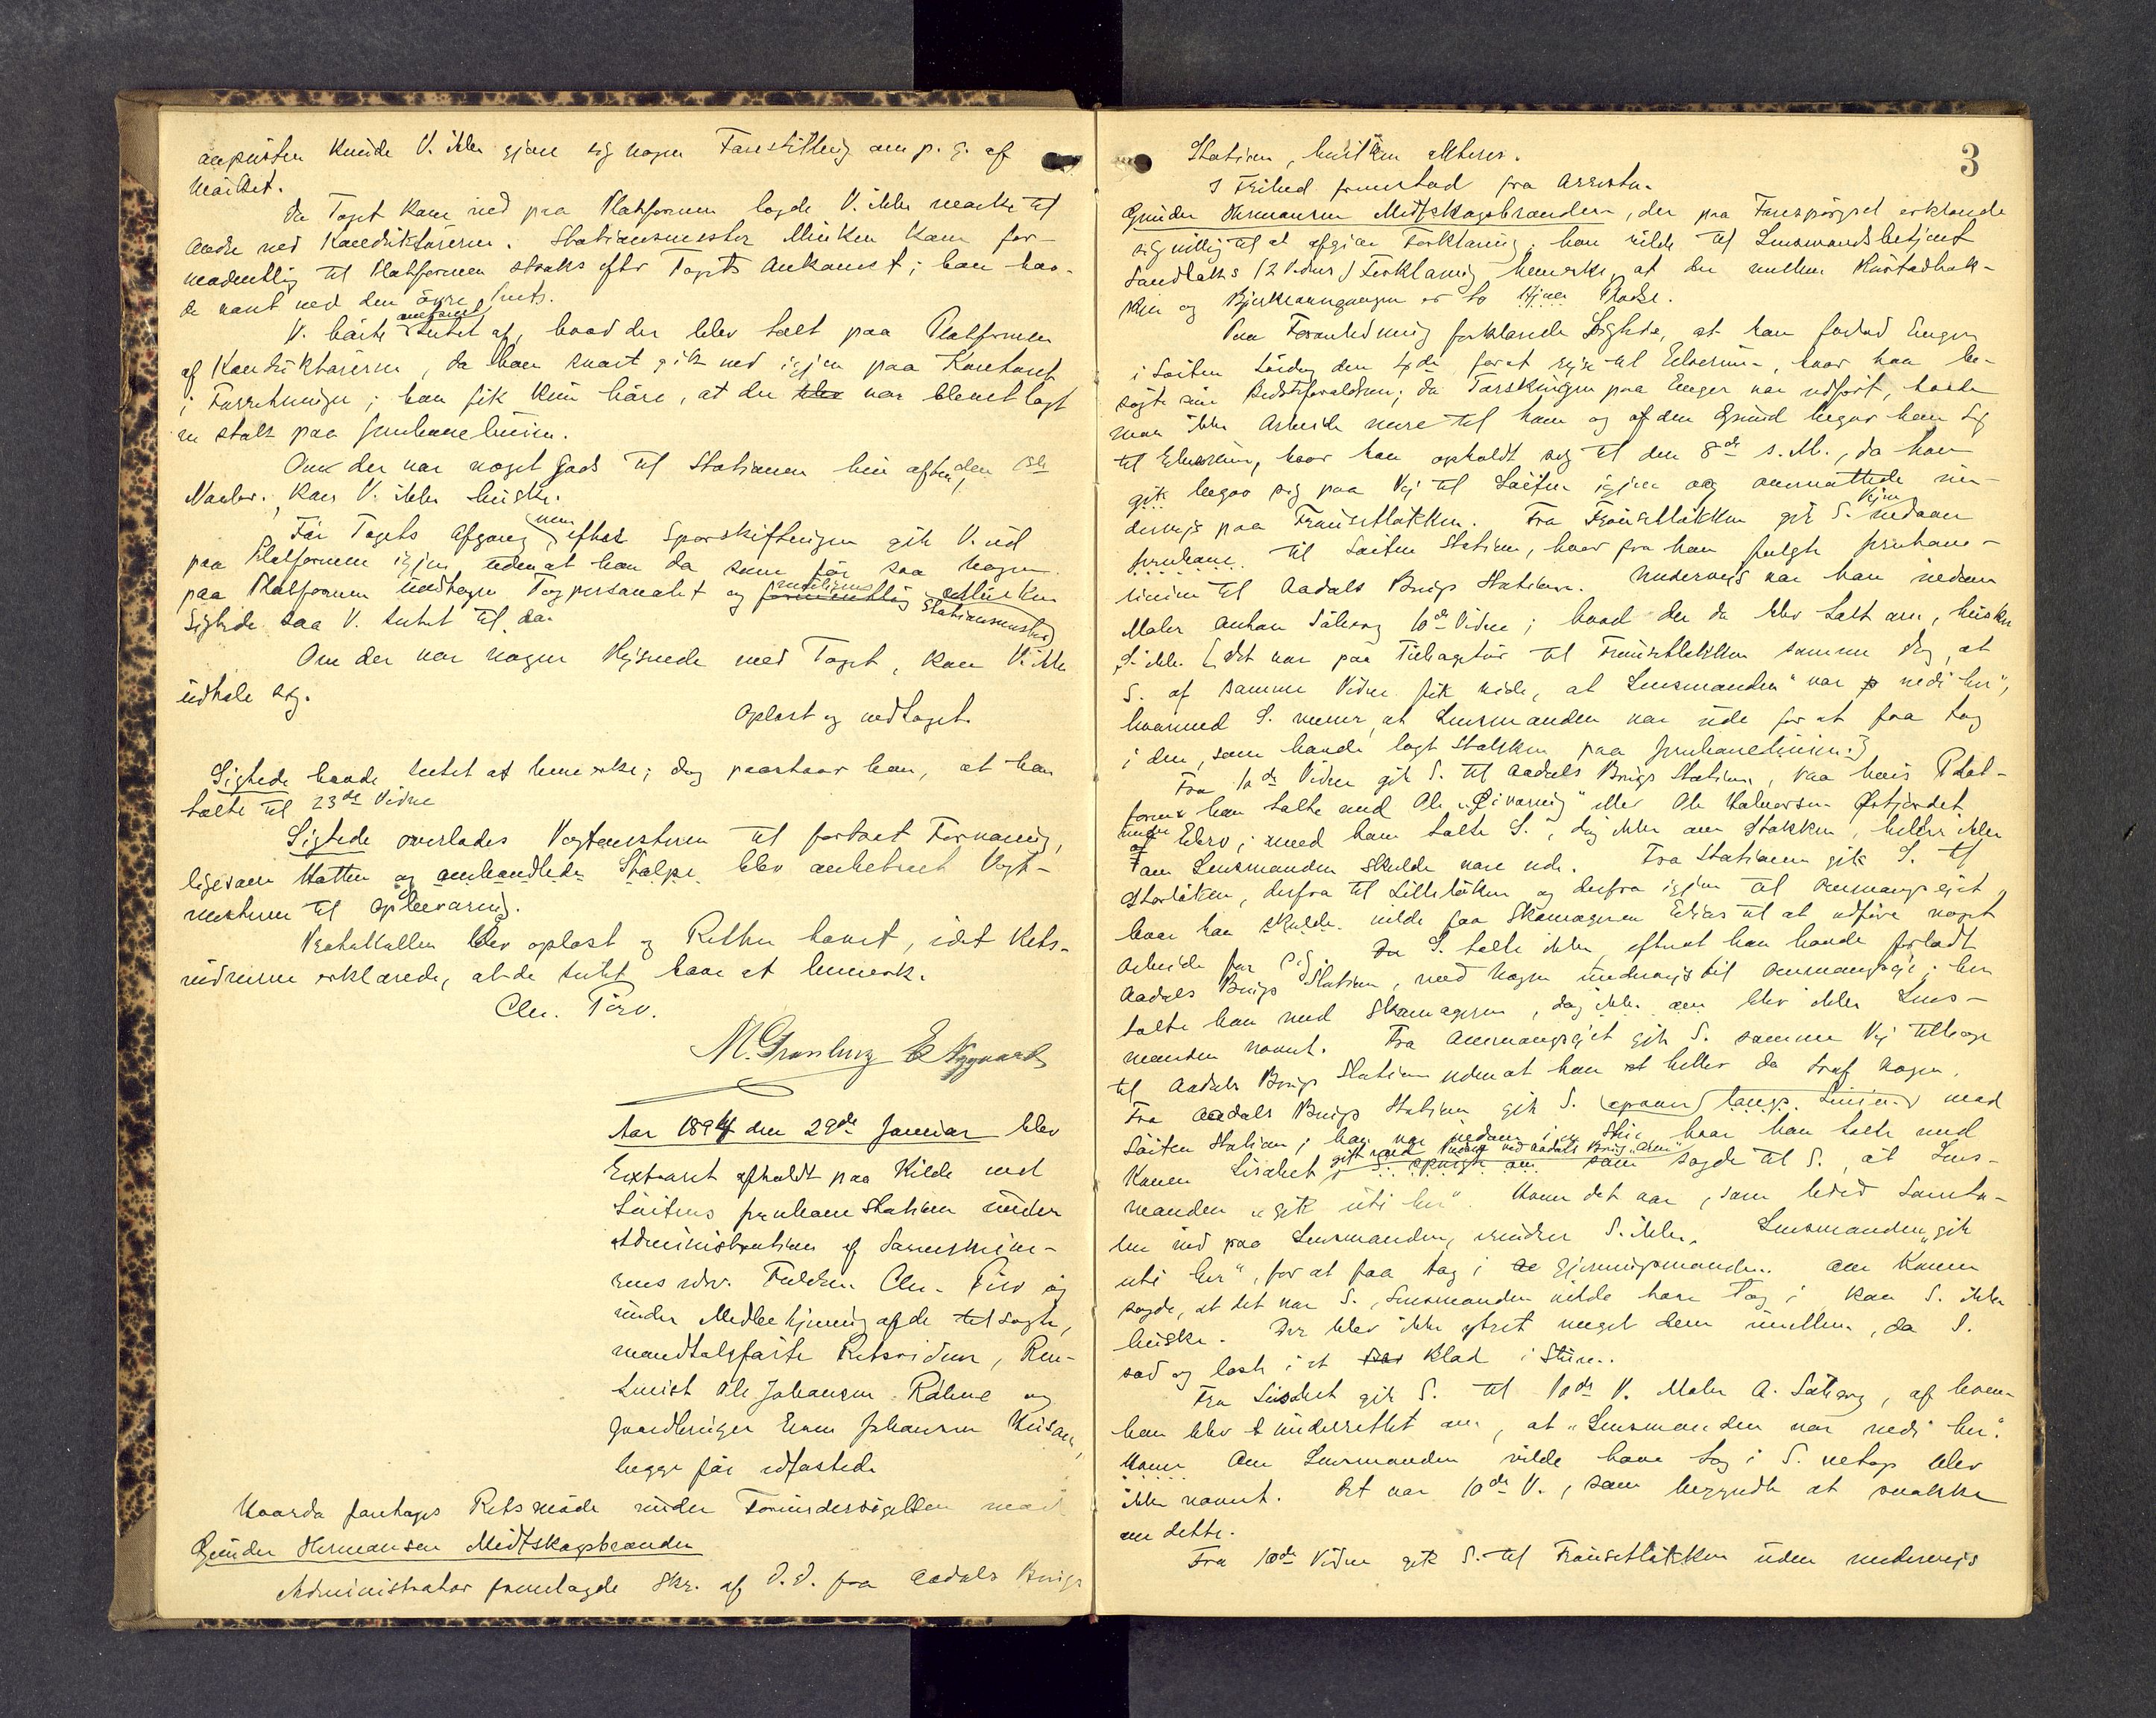 anpusten kunde V. ikke gjøre sig nogen Forestilling om p. g. af
Mørket.
Da Toget kom ind paa Platformen lagde V. ikke mærke til
andre end Konduktørerne. Stationsmester Minken kom for-
modentlig til Platformen straks efter Togets Ankomst; han hav-
de været ved den øvre Sents.
V. hørte omforent intet af, hvad der blev talt paa Platformen
af Konduktørerne, da han snart gik ind igjen paa Kontoret
i Forretninger; han fik kun høre, at der blev var blevet lagt
en stolk paa Jernbanelinien.
Om der var noget Gods til Stationen hin aften, den 8de
Novbr., kan V. ikke huske.
Før Togets Afgang, men efter Sporskiftningen gik V. ud
paa Platformen igjen uden at han da som før saa nogen
paa Platformen undtagen Togpersonalet og formentlig muligens Minken Stationsmester
Sigtede saa V. intet til da.
Om der var nogen Rejsende med Toget, kan V. ikke
udtale sig.
Oplæst og vedtaget.
Sigtede havde intet at bemerke; dog paastaar han, at han
talte til 23de Vidne
Sigtede overlades Vagtmesteren til fortsat Forvaring,
ligesom Hatten og omhandlede Stolpe blev anbetroet Vagt-
mesteren til Opbevaring.
Protokollen blev oplæst og Retten hævet, idet Rets-
vidnerne erklærede, at de intet have at bemerke.
Chr. Piro.
M. Grønberg E Nygaard
Aar 1894 den 29de Januar blev
Extraret afholdt paa Kilde ved
Løitens Jernbane Station under
Administration af Sorenskrive-
rens edsv. Fuldm. Chr. Piro og
under Medbetjening af de tilsagte,
mandtalsførte Retsvidner, Ren-
tenist Ole Johansen Rahne og
Gaardbruger Even Johansen
begge før edfæstede
Hvorda foretoges Retsmøde under Forundersøgelsen mod
Gunder Hermansen Midtskogsbranden
Administrator fremlagde Skr. af D. D. fra Aadals Brugs
3
Station, hvilken akteres.
I Frihed fremstod fra Arresten
Gunder Hermansen Midtskogsbranden, der paa Forespørgsel erklærede
sig villig til at afgive Forklaring. han vilde til Lensmandsbetjent
Sandbakks (2 Vidnes) Forklaring bemerke, at der mellem Kurstadbak-
ken og Bjerkeovngangen er to Hjem Stadse.
Paa Foranledning forklarede Sigtede, at han forlod Enger
i Løiten Lørdag den 4de for at rejse til Elverum, hvor han be-
søgte sine Bedsteforældre; da Tærskningen paa Enger var udført, havde
man ikke Arbeide mere til ham og af den Grund begav han sig
til Elverum, hvor han opholdt sig til den 8de s. M., da han
gik begav sig paa Vej til Løiten igjen og overnattede un-
dervejs paa Fransetløkken. Fra Fransetløkken gik S. Vejen nedover
Jernbane til Løiten Station, hvor fra han fulgte Jernbane-
linien til Aadals Brugs Station. Undervejs var han indom
Maler Anton Sæterang 10de Vidne; hvad der da blev talt om, husker
S. ikke. [det var paa Tilbagetur til Fransetløkken samme Dag, at
S. af samme Vidne fik vide, at Lensmanden "var p nedi her",
hvormed S. mener, at Lensmanden var ude for at faa tag
i den, som havde lagt Stokken paa Jernbanelinien.]
Fra 10de Vidne gik S. til Aadals Brugs Station, paa hvis Plat-
form han talte med Ole "Givarsvig" eller Ole Halvorsen Østjordet
under Elvs; med ham talte S., dog ikke om Stokken, heller ikke
om Lensmanden skulde være ude. Fra Stationen gik S. til
Storløken, derfra til Lilleløken og derfra igjen til Ommangsejet,
hvor han skulde vilde faa Skomageren Elias til at udføre noget
Arbeide for sig. Da S. talte ikke, efterat han havde forladt
Aadals Brugs Station, med nogen undervejs til Ommangsejet; her
talte han med Skomageren, dog ikke om blev ikke Lens-
manden nævnt. Fra Ommangsejet gik S. samme Vej tilbage
til Aadals Brugs Station uden at han at heller da traf nogen.
Fra Aadals Brugs Station gik S. opover langs Linien mod
Løiten Station; han var indom i en Stue hvor han talte med
Konen Lisabet gift med ved Aadals Brug, S. spurgte om som sagde til S., at Lens-
manden "gik uti her". Hvem det var, som leded Samta-
len ind paa Lensmanden, erindrer S. ikke. Lensmanden "gik
uti her", for at faa tag i de Gjerningsmanden. Om Konen
sagde, at det var S., Lensmanden vilde have Tag i, kan S. ikke
huske. Der blev ikke ytret meget dem imellem, da S.
sad og læste i et Blad i Stuen.
Fra Lisabet gik S. til 10de V. Maler A. Sæterang, af hvem
han blev t underrettet om, at "Lensmanden var nedi her".
Hvem Om Lensmanden vilde have tag i S. netop blev
ikke nævnt. Det var 10de V., som begyndte at snakke
om dette.
Fra 10de Vidne gik S. til Fransetløkken uden undervejs